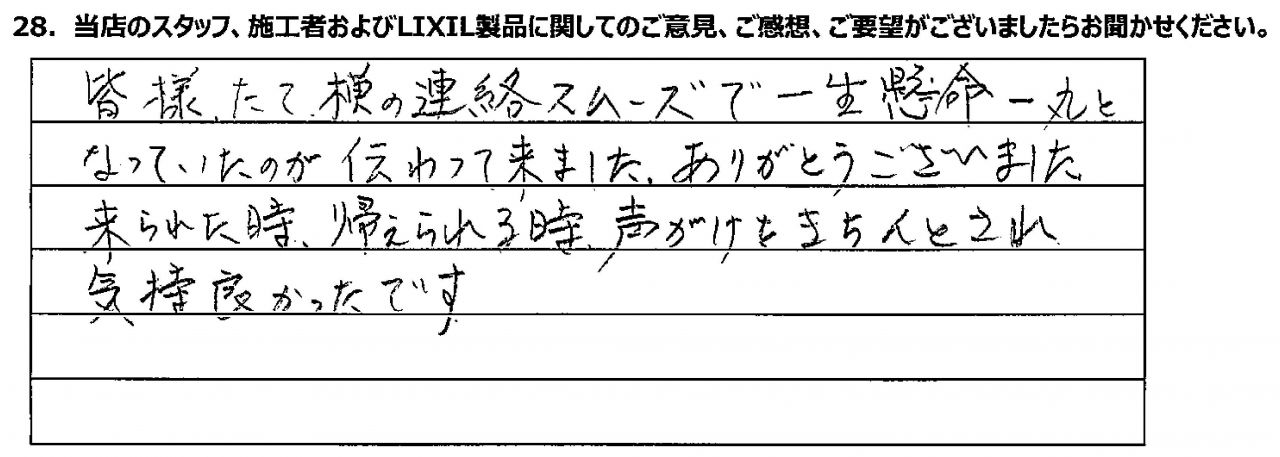 28. 当店のスタッフ、施工者およびLIXIL製品に関してのご意見、ご感想、ご要望がございましたらお聞かせください。
皆様、たて、横の連絡スムーズで一生懸命一丸と
なっていたのが伝わって来ました。ありがとうございました
来られた時、帰えられる時、声がけもきちんとされ
気持良かったです